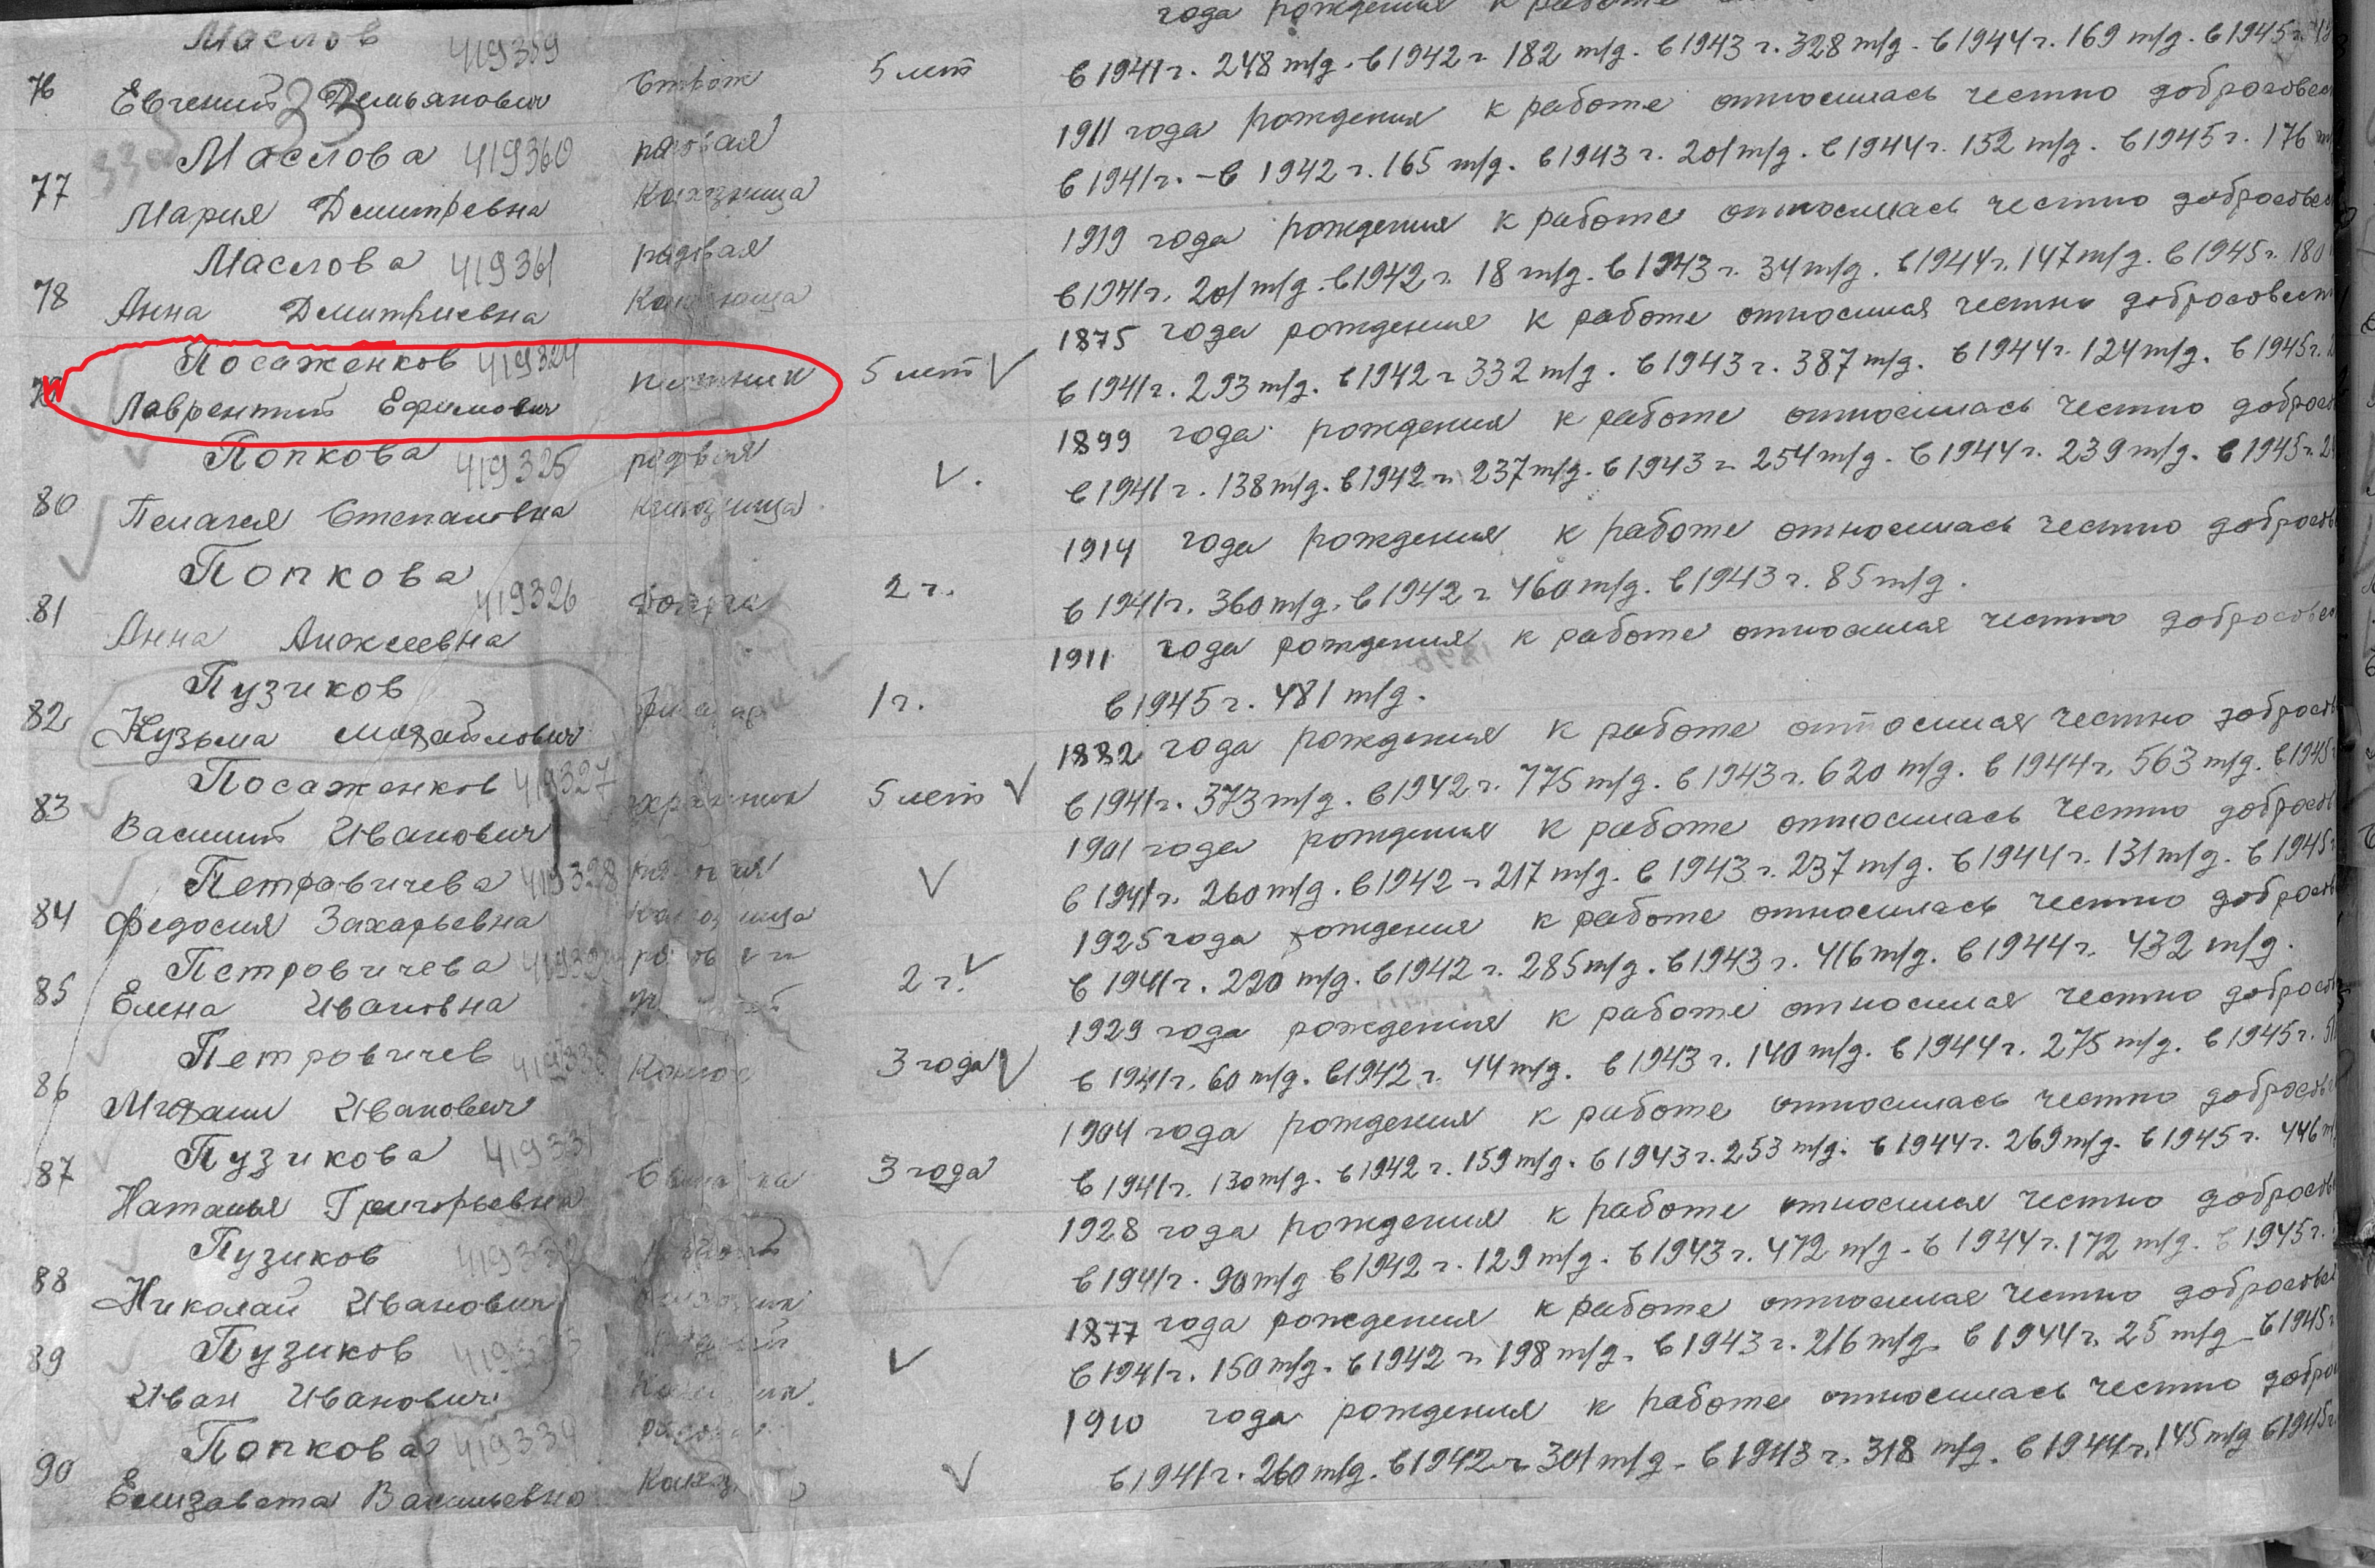 года рождения к работе
Маслов 419359
в 1941 г. 248 т/д. в 1942 г. 182 т/д. в 1943 г. 328 т/д. в 1944 г. 169 т/д. в 1945 г.
76 Евгений Демьянович Сторож 5 лет
33
1911 года рождения к работе относилась честно добросовес
Маслова 419360 рядовая
в 1941 г. - в 1942 г. 165 т/д. в 1943 г. 201 т/д. в 1944 г. 152 т/д. в 1945 г. 176 т/
77 Мария Дмитревна Колхозница
1919 года рождения к работе относилась честно добросовес
Маслова 419361 рядовая
в 1941 г. 201 т/д. в 1942 г. 18 т/д. в 1943 г. 34 т/д. в 1944 г. 147 т/д. в 1945 г. 180
78 Анна Дмитриевна Колхозница
1875 года рождения к работе относился честно добросовест
Посаженков 419324
79 Лаврентий Ефимович плотник 5 лет V
в 1941 г. 293 т/д. в 1942 г 332 т/д. в 1943 г. 387 т/д. в 1944 г. 124 т/д. в 1945 г.
1899 года рождения к работе относилась честно добросо
Попкова 419325 рядовая
в 1941 г. 138 т/д. в 1942 г. 237 т/д. в 1943 г. 254 т/д. в 1944 г. 239 т/д. в 1945 г. 2
80 Пелагея Степановна Колхозница V.
1914 года рождения к работе относилась честно добросов
Попкова 419326
81 Анна Алексеевна Доярка 2 г.
в 1941 г. 360 т/д. в 1942 г 460 т/д. в 1943 г. 85 т/д.
1911 года рождения к работе относился честно добросовес
Пузиков
82 Кузьма Михайлович 1 г.
в 1945 г. 481 т/д.
1882 года рождения к работе относился честно добросов
Посаженков 419327
83 Василий Иванович охранник 5 лет V
в 1941 г. 373 т/д. в 1942 г. 775 т/д. в 1943 г. 620 т/д. в 1944 г. 563 т/д. в 1945
1901 года рождения к работе относилась честно добросов
Петровичева 419328 рядовая V
в 1941 г. 260 т/д. в 1942 г 217 т/д. в 1943 г. 237 т/д. в 1944 г. 131 т/д. в 1945
84 Федосия Захарьевна Колхозница
1925 года рождения к работе относилась честно добросов
Петровичева
85 Елена Ивановна 2 г. V
в 1941 г. 220 т/д. в 1942 г. 285 т/д. в 1943 г. 416 т/д. в 1944 г. 432 т/д.
1929 года рождения к работе относился честно добросов
Петровичев 419330
86 Михаил Иванович Конюх 3 года V
в 1941 г. 60 т/д. в 1942 г. 44 т/д. в 1943 г. 140 т/д. в 1944 г. 275 т/д. в 1945 г.
1904 года рождения к работе относилась честно добросов
Пузикова 419331
87 Наталья Григорьевна 3 года
в 1941 г. 130 т/д. в 1942 г. 159 т/д. в 1943 г. 253 т/д. в 1944 г. 269 т/д. в 1945 г. 446 т
1928 года рождения к работе относился честно добросов
Пузиков 419332 V
88 Николай Иванович
в 1941 г. 90 т/д в 1942 г. 129 т/д. в 1943 г. 472 т/д. в 1944 г. 172 т/д. в 1945 г.
1877 года рождения к работе относился честно добросовес
Пузиков
89 Иван Иванович V
в 1941 г. 150 т/д. в 1942 г. 198 т/д. в 1943 г. 216 т/д. в 1944 г. 25 т/д в 1945
1910 года рождения к работе относилась честно добро
Попкова 419334
90 Елизавета Васильевна V
в 1941 г. 260 т/д. в 1942 г 301 т/д. в 1943 г. 318 т/д. в 1944 г. 145 т/д в 1945 г.